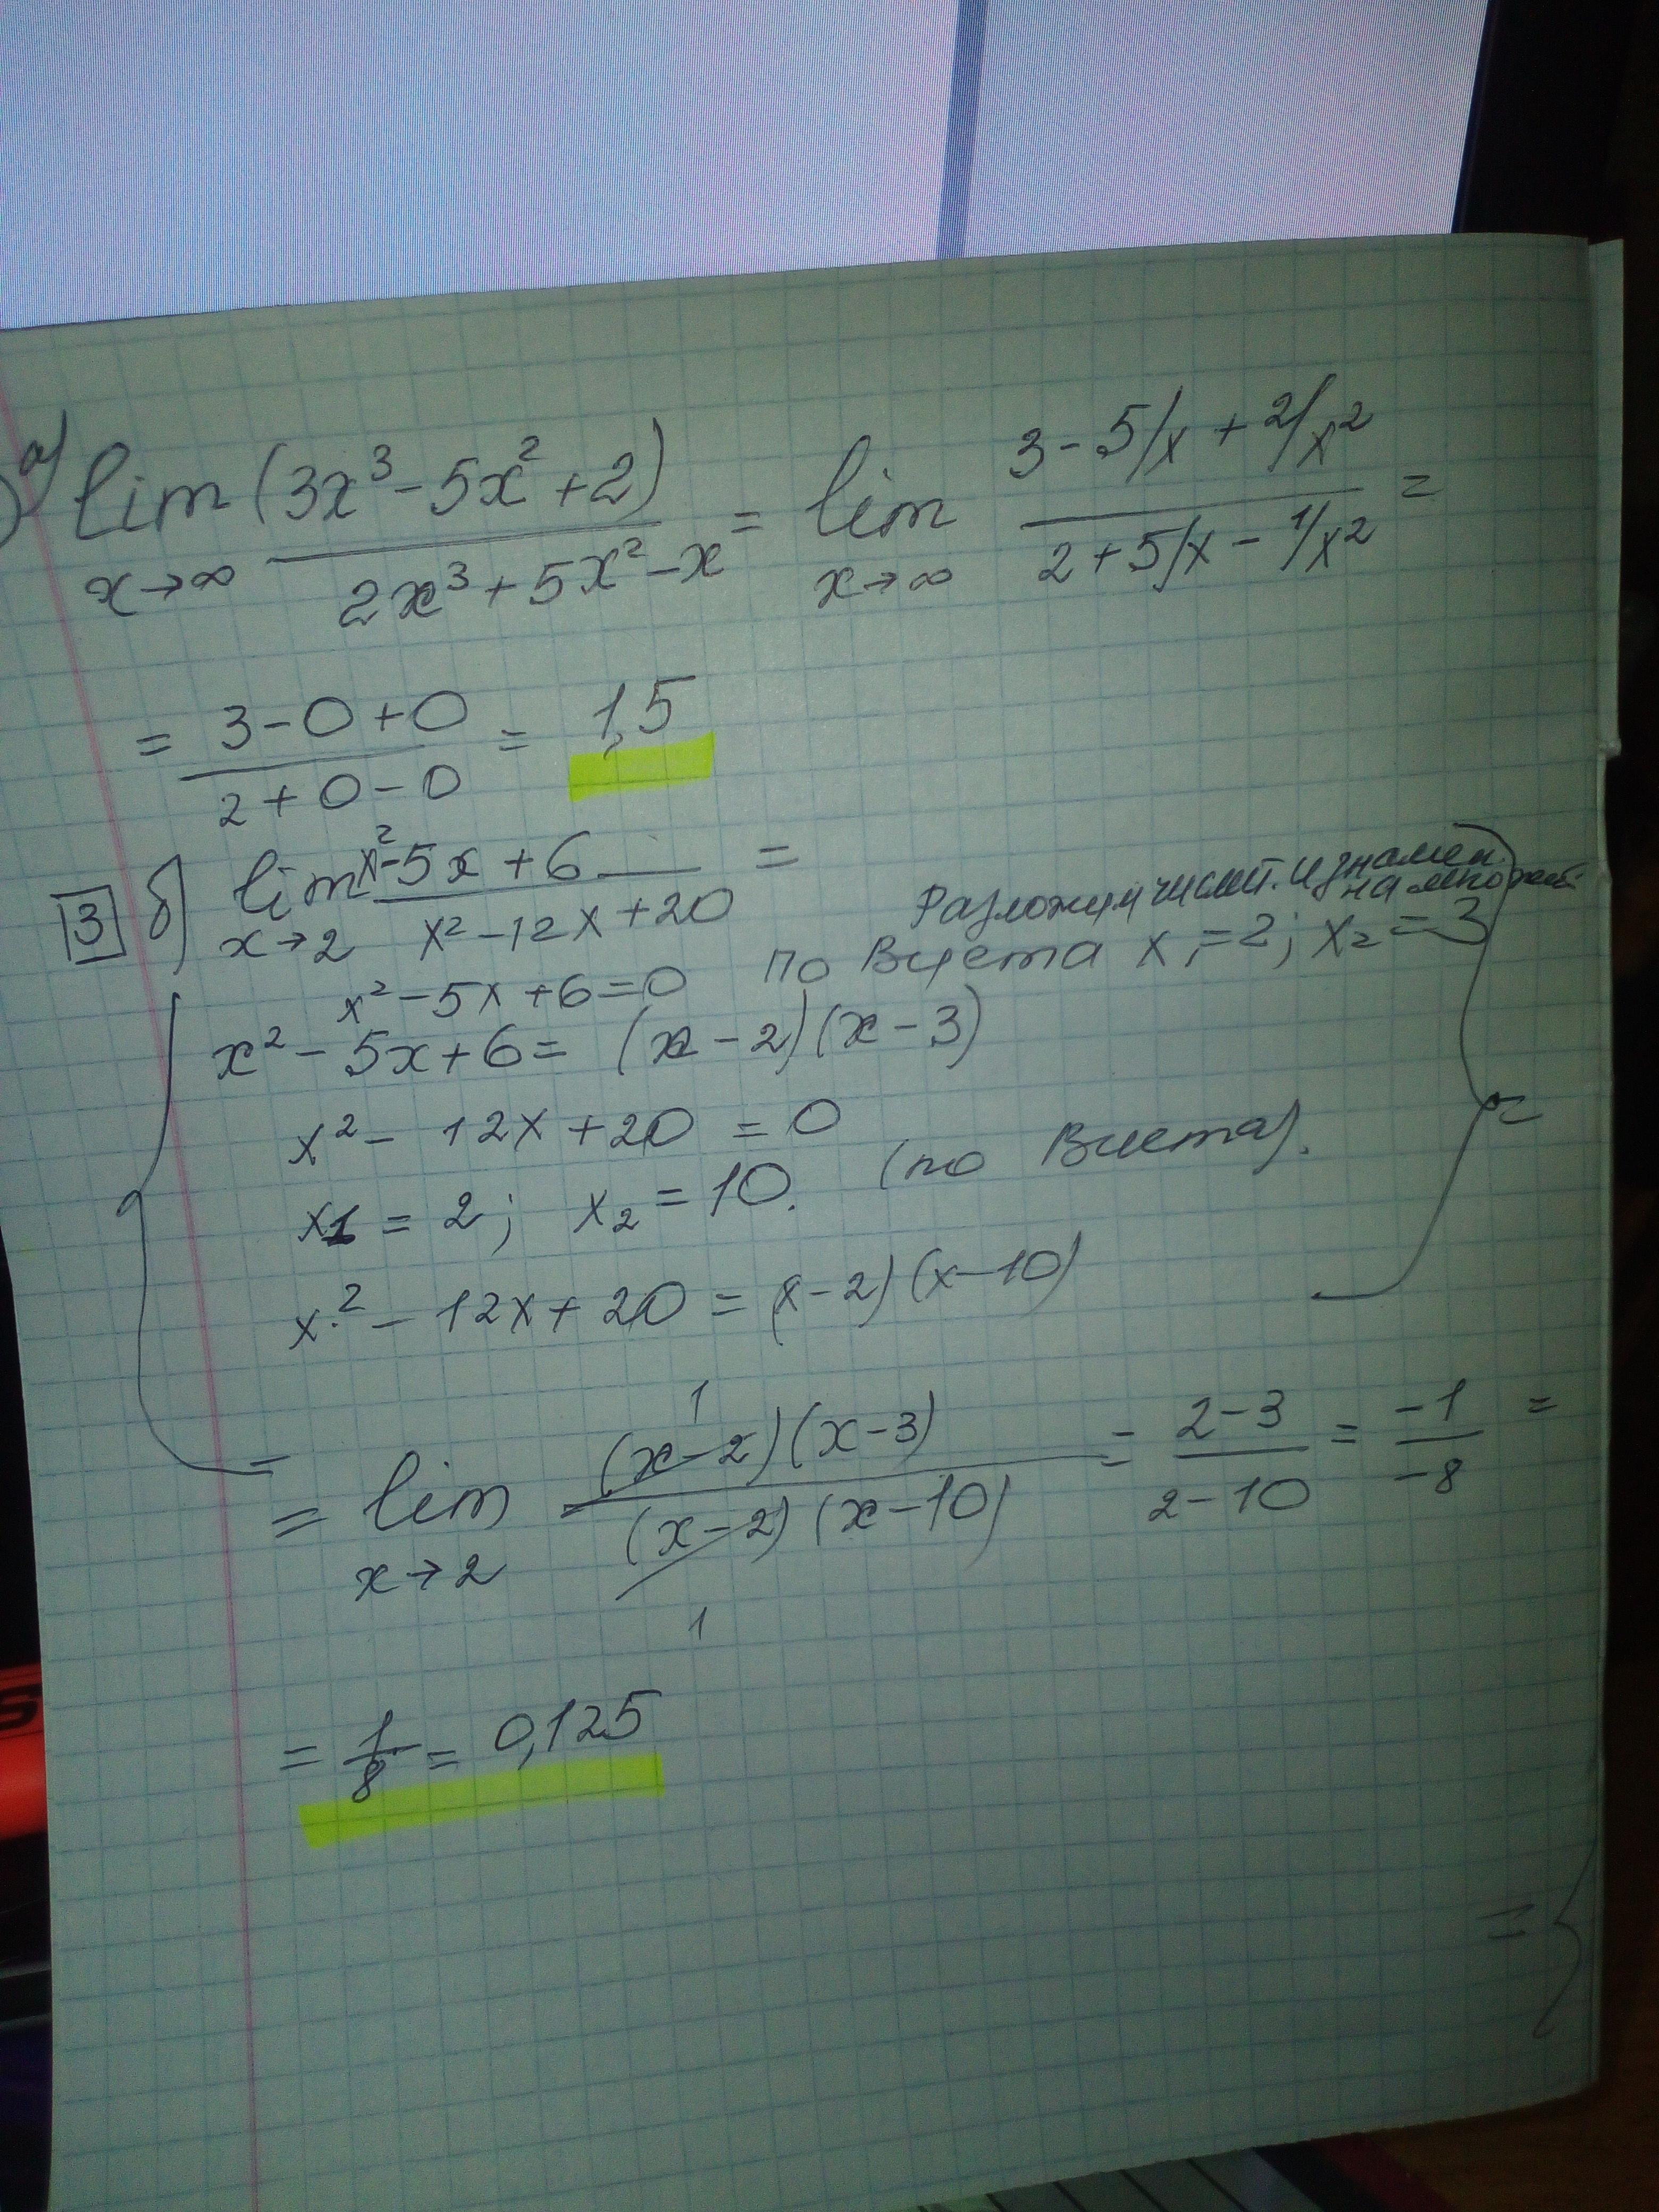 а) lim (3x³ - 5x² + 2) / (2x³ + 5x² - x) = lim (3 - 5/x + 2/x²) / (2 + 5/x - 1/x²) =
x→∞ x→∞
= (3 - 0 + 0) / (2 + 0 - 0) = 1,5
3 б) lim (x² - 5x + 6) / (x² - 12x + 20) =
x→2
Разложим числит. и знамен.
на множит
x² - 5x + 6 = 0 по Виета x₁ = 2; x₂ = 3
x² - 5x + 6 = (x - 2)(x - 3)
x² - 12x + 20 = 0
x1 = 2; x₂ = 10. (по Виета).
x² - 12x + 20 = (x - 2)(x - 10)
=
= lim (x - 2)(x - 3) / (x - 2)(x - 10) = (2 - 3) / (2 - 10) = -1 / -8 =
x→2
1
1
= 1/8 = 0,125
= {